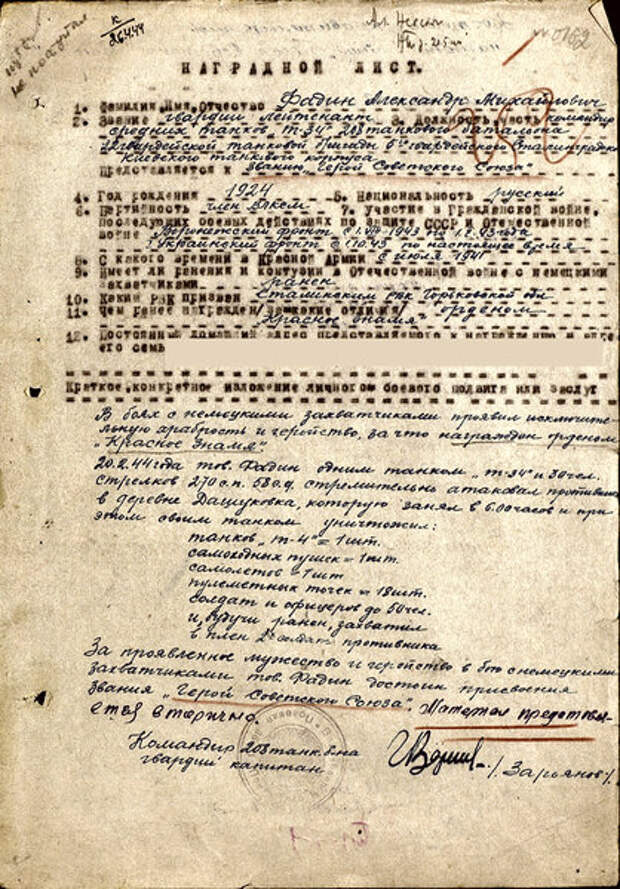 К
26.4.44
№ 0162
НАГРАДНОЙ ЛИСТ.
1. Фамилия, Имя, Отчество Фадин Александр Михайлович
2. Звание гвардии Лейтенант 3. Должность, часть командир
средних танков „Т-34" 208 танкового баталиона
гвардейской танковой бригады 5 гвардейского Сталинградско
Киевского танкового корпуса
Представляется к званию „Герой Советского Союза"
4. Год рождения 1924 5. Национальность русский
6. Партийность член ВЛКСМ 7. участие в Гражданской войне,
последующих боевых действиях по защите СССР и Отечественной
войне Воронежский фронт с
1 Украинский фронт с по настоящее время
8. С какого времени в Красной Армии с июля 1941
9. Имеет ли ранения и контузии в Отечественной войне с немецкими
захватчиками ранен
10. Каким РВК призван Сталинским РВК Горьковской обл
11. Чем ранее награжден/за какие отличия/ орденом
„Красное знамя"
12. Постоянный домашний адрес представляемого к награждению и адрес
его семь
Краткое, конкретное изложение личного боевого подвига или заслуг
В боях с немецкими захватчиками проявил исключите-
льную храбрость и геройство, за что награжден орденом
„Красное Знамя".
20.2.44 года тов. Фадин одним танком „Т-34" и 30 чел.
стрелков 270 с.п. 58 с.д. стремительно атаковал противника
в деревне Дашуковка, которую занял в 6.00 часов и при
этом своим танком уничтожил:
танков „Т-4" = 1 шт.
самоходных пушек = 1 шт.
самолетов = 1 шт
пулеметных точек = 18 шт.
солдат и офицеров до 50 чел.
и, будучи ранен, захватил
в плен 2х солдат противника
За проявленное мужество и геройство в бою с немецкими
захватчиками тов. Фадин достоин присвоения
звания „Герой Советского Союза". Матерьял представля-
ется вторично.
Командир 208 танк. б-на
гвардии капитан /Зарьянов/.